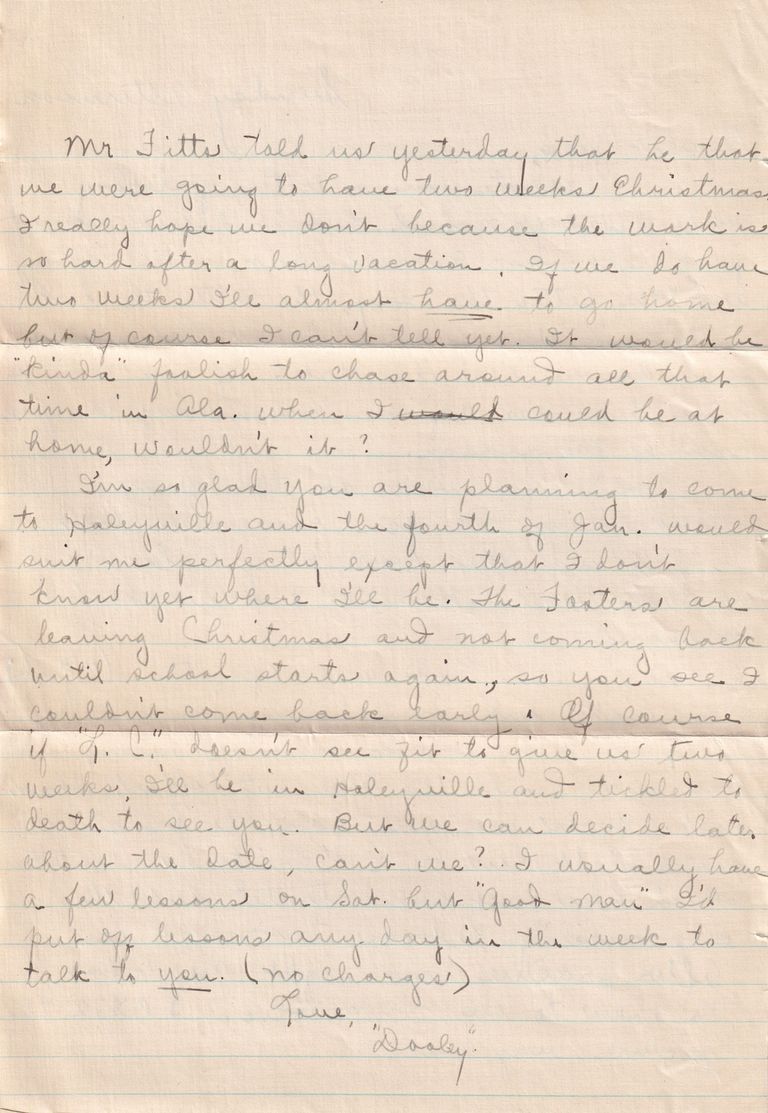 Mr Fitts told us yesterday that he that
we were going to have two weeks Christmas.
I really hope we don't because the work is
so hard after a long vacation. If we do have
two weeks I'll almost have to go home
but of course I can't tell yet. It would be
"kinda" foolish to chase around all that
time in Ala. when I would could be at
home, wouldn't it?
I'm so glad you are planning to come
to Haleyville and the fourth of Jan. would
suit me perfectly except that I don't
know yet where I'll be. The Fosters are
leaving Christmas and not coming back
until school starts again, so you see I
couldn't come back early. Of course
if "T. C." doesn't see fit to give us two
weeks, I'll be in Haleyville and tickled to
death to see you. But we can decide later
about the date, can't we? I usually have
a few lessons on Sat. but "Good Man" I'd
put off lessons any day in the week to
talk to you. (no charges)
Love,
"Dooley".